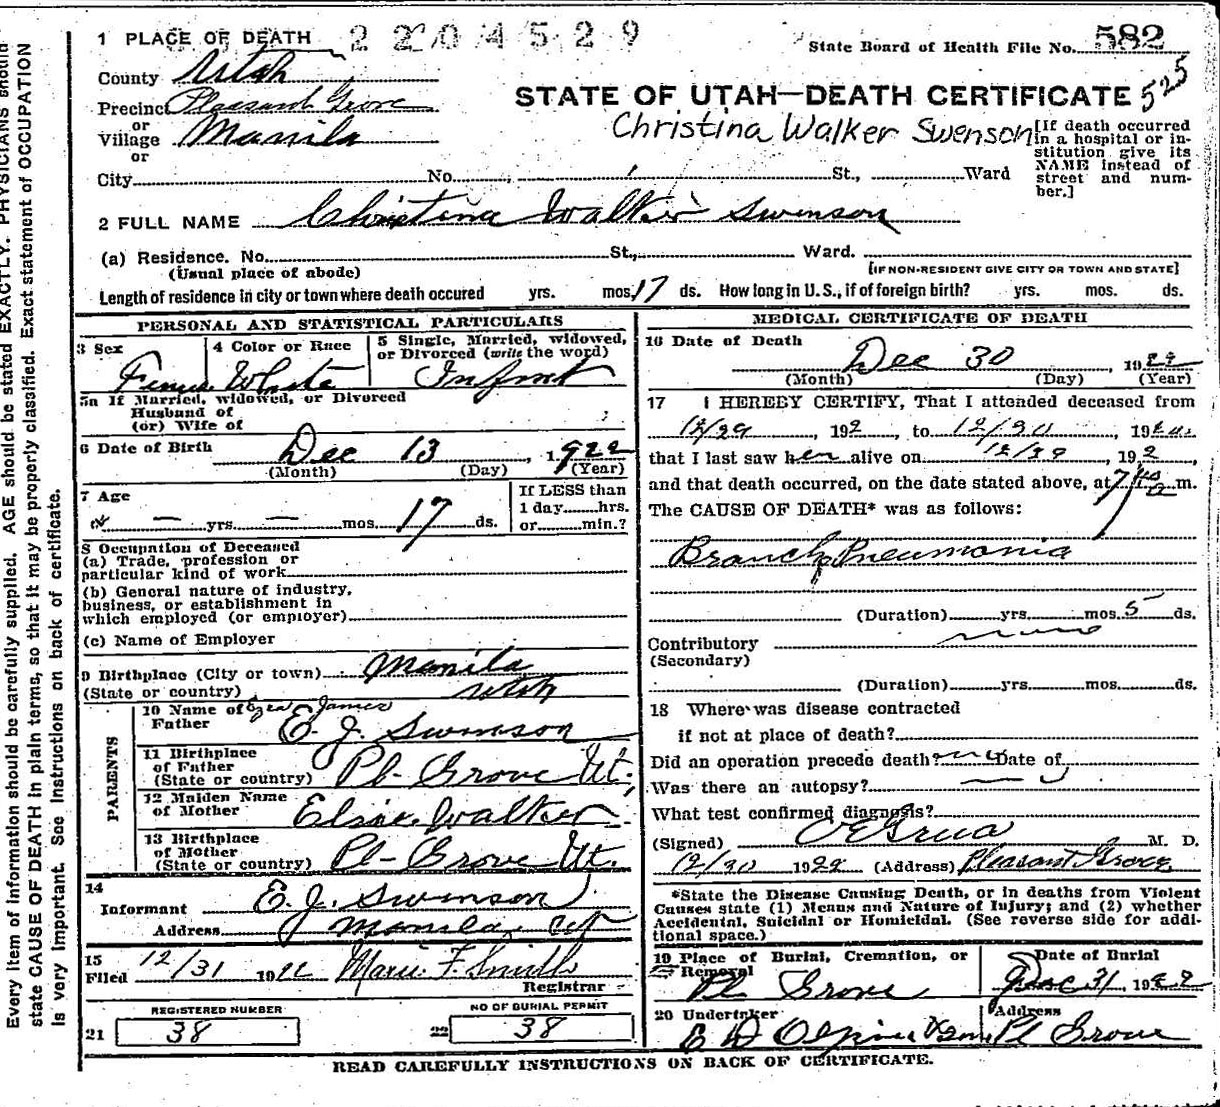 2204529
1 PLACE OF DEATH
State Board of Health File No. 582
525
County Utah
Precinct Pleasant Grove
or
Village Manila
or
STATE OF UTAH—DEATH CERTIFICATE
Christina Walker Swenson
[If death occurred in a hospital or in-
stitution give its
NAME instead of
street and num-
ber.]
City No. St., Ward
2 FULL NAME Christina Walker Swenson
(a) Residence. No. St., Ward.
(Usual place of abode)
[IF NON-RESIDENT GIVE CITY OR TOWN AND STATE]
Length of residence in city or town where death occured yrs. mos. 17 ds. How long in U.S., if of foreign birth? yrs. mos. ds.
PERSONAL AND STATISTICAL PARTICULARS
3 Sex
4 Color or Race White
5 Single, Married, widowed,
or Divorced (write the word)
Infant
5a If Married, widowed, or Divorced
Husband of
(or) Wife of
6 Date of Birth Dec 13, 1922
(Month) (Day) (Year)
7 Age
— yrs. — mos. 17 ds.
If LESS than
1 day hrs.
or min.?
8 Occupation of Deceased
(a) Trade, profession or
particular kind of work
(b) General nature of industry,
business, or establishment in
which employed (or employer)
(c) Name of Employer
9 Birthplace (City or town) Manila
(State or country) Utah
PARENTS
10 Name of James
Father E. J. Swenson
11 Birthplace
of Father
(State or country) Pl- Grove Ut.
12 Maiden Name
of Mother Elsie Walker
13 Birthplace
of Mother
(State or country) Pl- Grove Ut.
14
Informant E. J. Swenson
Address Manila, Ut
15
Filed 12/31 1922 F. Smith
Registrar
REGISTERED NUMBER
21 38
NO OF BURIAL PERMIT
22 38
MEDICAL CERTIFICATE OF DEATH
16 Date of Death
Dec 30 1922
(Month) (Day) (Year)
17 I HEREBY CERTIFY, That I attended deceased from
12/29, 192 , to 12/30, 192
that I last saw her alive on , 192 ,
and that death occurred, on the date stated above, at m.
The CAUSE OF DEATH* was as follows:
Branch Pneumonia
(Duration) yrs. mos. 5 ds.
Contributory none
(Secondary)
(Duration) yrs. mos. ds.
18 Where was disease contracted
if not at place of death?
Did an operation precede death? Date of
Was there an autopsy?
What test confirmed diagnosis?
(Signed) Grua M. D.
12/30 1922 (Address) Pleasant Grove
*State the Disease Causing Death, or in deaths from Violent
Causes state (1) Means and Nature of Injury; and (2) whether
Accidental, Suicidal or Homicidal. (See reverse side for addi-
tional space.)
19 Place of Burial, Cremation, or
Removal
Pl Grove
Date of Burial
Dec 31, 1922
20 Undertaker
Address
Pl Grove
READ CAREFULLY INSTRUCTIONS ON BACK OF CERTIFICATE.
Every item of information should be carefully supplied. AGE should be stated EXACTLY. PHYSICIANS should
state CAUSE OF DEATH in plain terms, so that it may be properly classified. Exact statement of OCCUPATION
is very important. See Instructions on back of certificate.